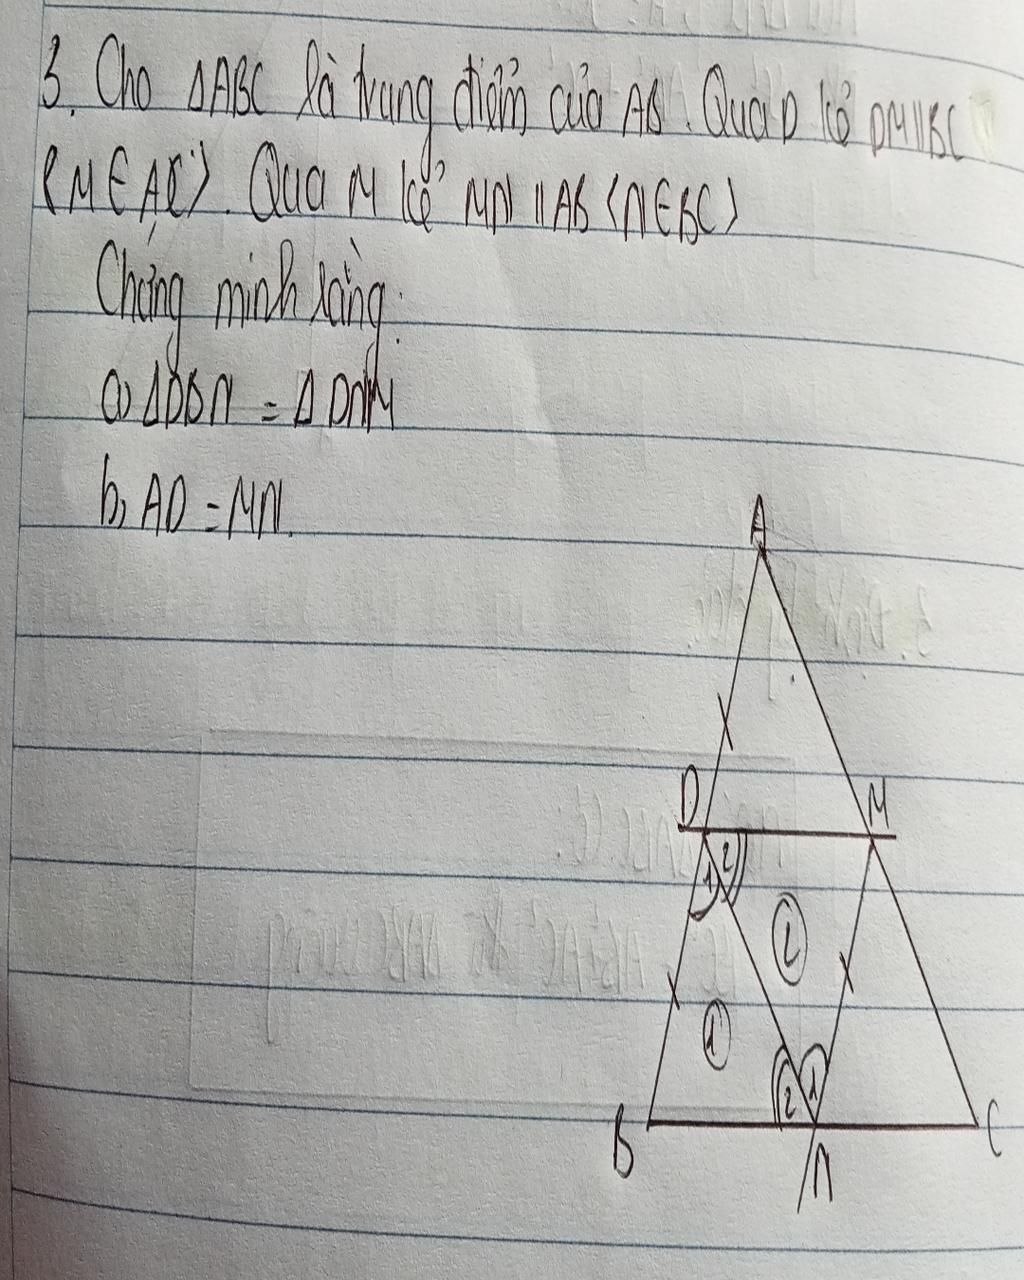 3. Cho ΔABC là trung điểm của AB. Qua D kẻ DM//BC
(M∈AC). Qua M kẻ MN // AB (N∈BC)
Chứng minh rằng:
a) ΔDBN = ΔDNM
b, AD = MN.
A
D
M
1
2
2
1
2
1
B
N
C